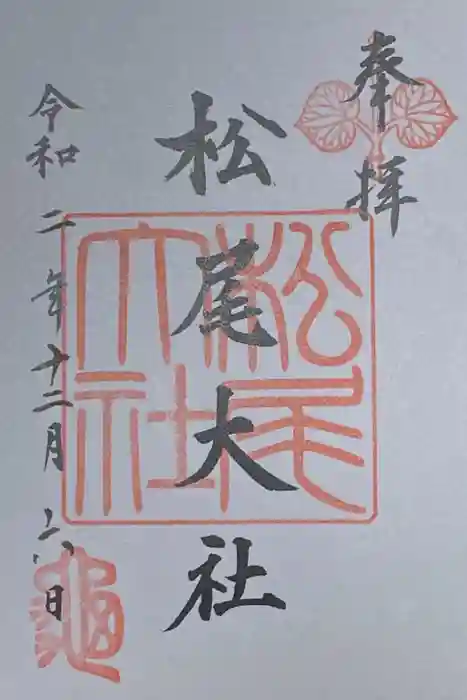 奉拝
松尾大社
松尾大社
令和二年十二月六日
亀